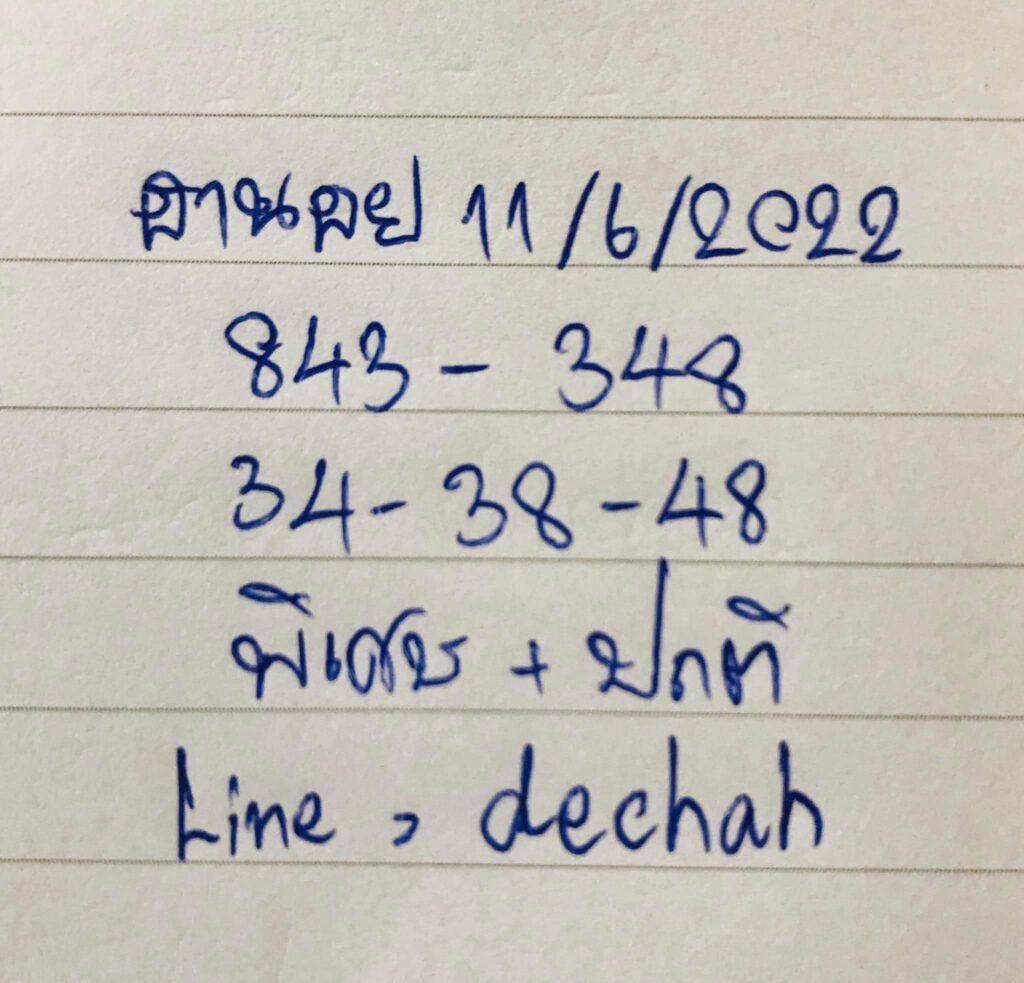 ฮานอย 11/6/2022
843 - 348
34 - 38 - 48
พิเศษ + ปกติ
Line > dechah